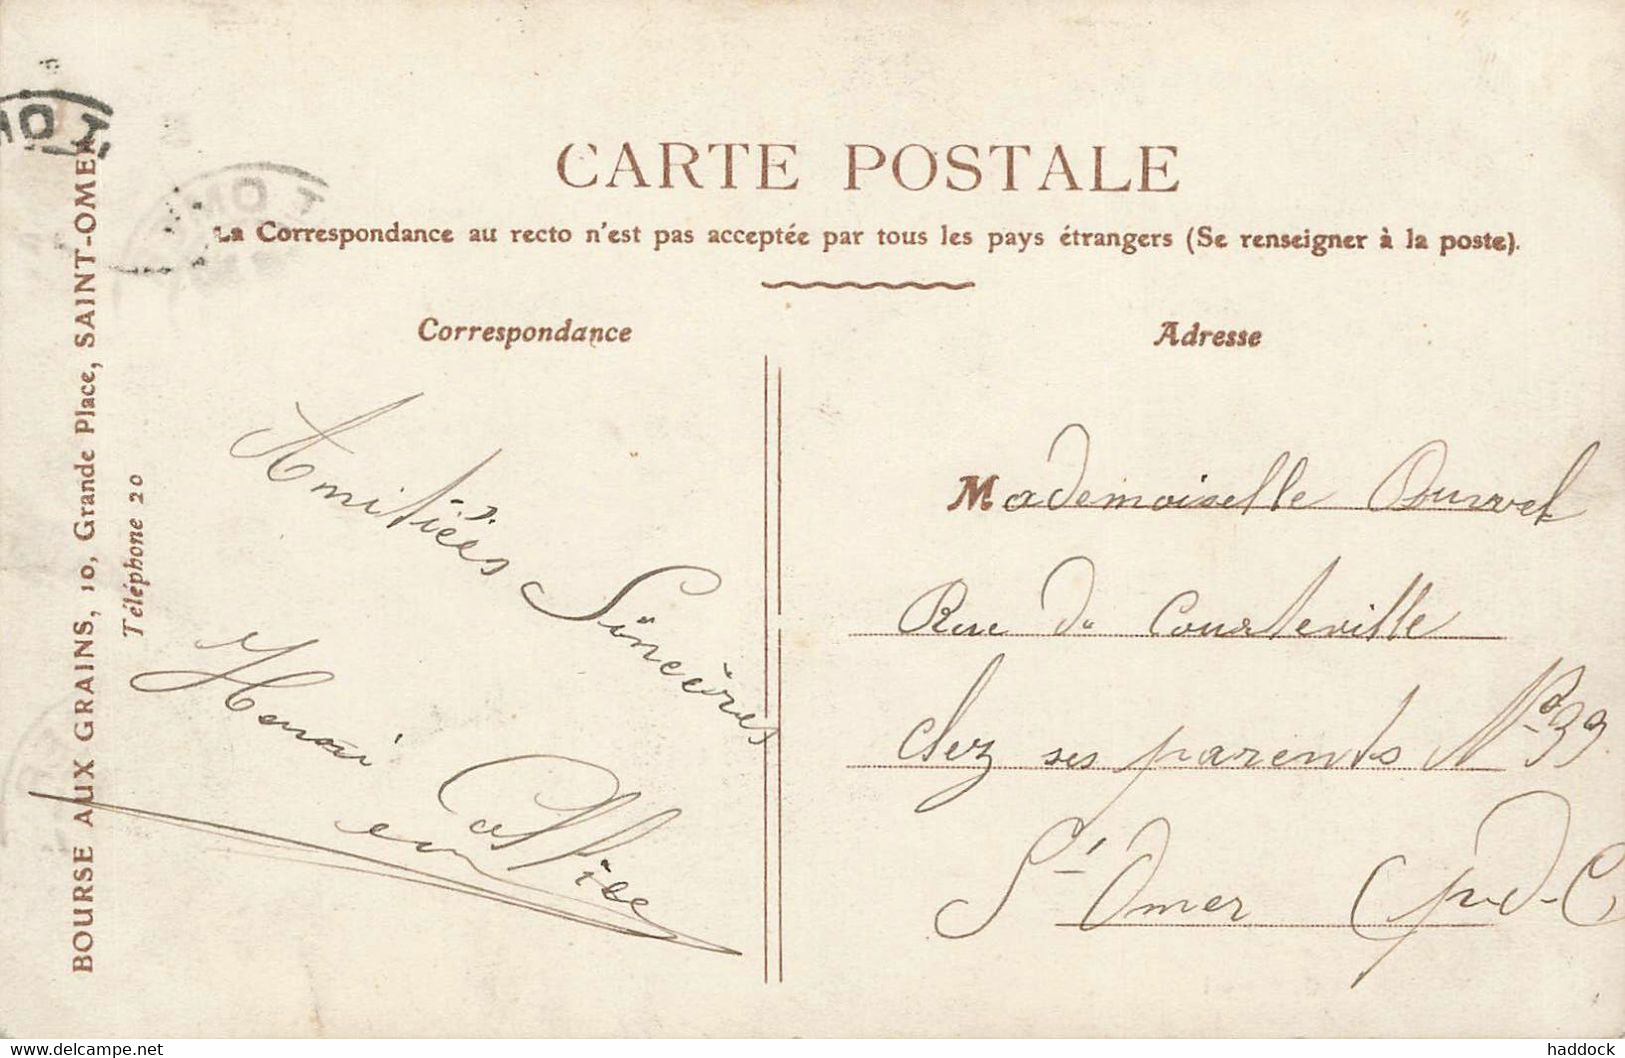 CARTE POSTALE
La Correspondance au recto n'est pas acceptée par tous les pays étrangers (Se renseigner à la poste).
Correspondance
Amitiées Sincères
Henri
Adresse
Mademoiselle
Rue de Courteville
Chez ses parents Nº 39
St Omer (P-d-C)
BOURSE AUX GRAINS, 10, Grande Place, SAINT-OMER
Téléphone 20
www.delcampe.net
haddock